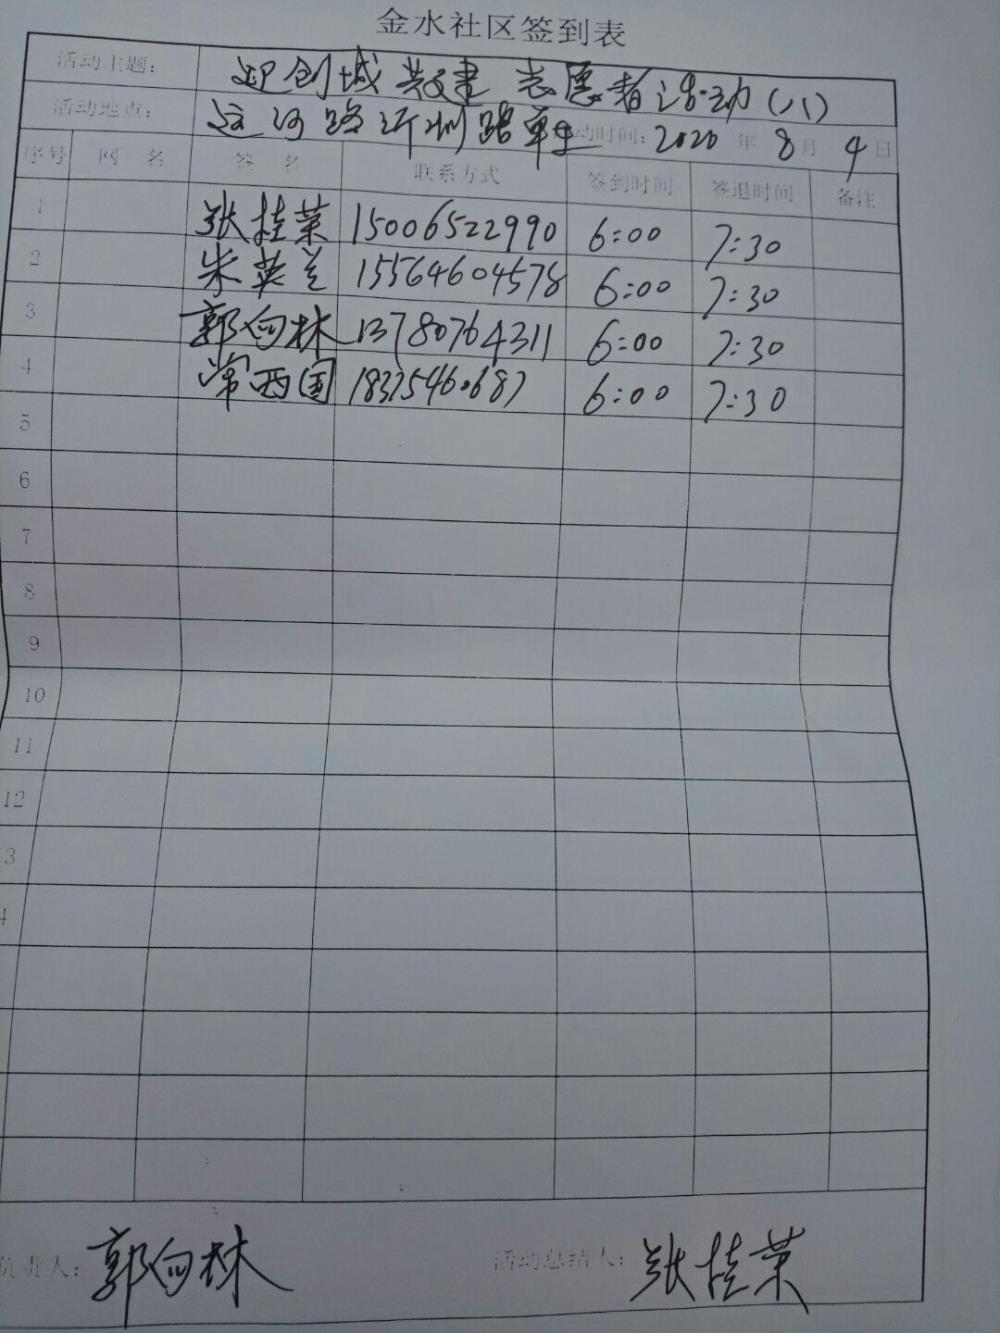 金水社区签到表
活动主题： 迎创城 共建 志愿者活动（八）
活动地点： 沂河路沂州路单 动时间：2020 年 8 月 4 日
序号 网 名 签 名 联系方式 签到时间 签退时间 备注
1 张桂荣 15006522990 6:00 7:30
2 朱英兰 15564604578 6:00 7:30
3 郭向林 13780764311 6:00 7:30
4 常西国 6:00 7:30
5
6
7
8
9
10
11
12
3
4
负责人： 郭向林 活动总结人： 张桂荣